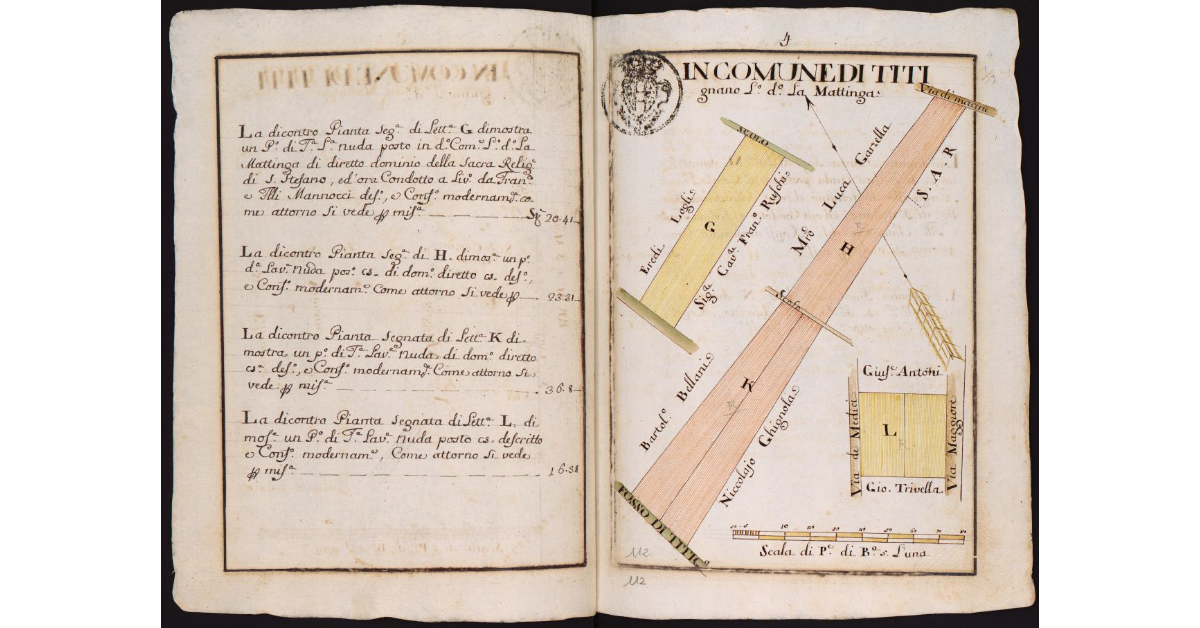 La dicontro Pianta Seg.ª di Lett.ª G dimostra
un P.º di T.ª L.ª nuda posto in d.º Com.e L.º d.º La
Mattinga di diretto dominio della Sacra Relig.e
di S. Stefano, ed'ora Condotto a Liv.º da Fran.º
e Flli Mannocci des.º, e Conf.º modernam.e co
me attorno si vede p mis.ª 20.41
La dicontro Pianta seg.ª di H. dimos.ª un p.º
d.ª Lav.ª nuda pos.º cs. di dom.º diretto cs. des.º,
e Conf.º modernam.e Come attorno Si vede p
La dicontro Pianta segnata di Lett.ª K di
mostra un p.º di T.ª Lav.ª nuda di dom.º diretto
cs. des.º, e Conf.º modernam.e Come attorno Si
vede p mis.ª 36.8
La dicontro Pianta segnata di Lett.ª L. di
mos.ª un P.º di T.ª Lav.ª nuda posto cs. descritto
e Conf.º modernam.e, Come attorno Si vede
p mis.ª 16.38
4
IN COMUNE DI TITI
gnano L.º d.º La Mattinga
Via di macine
SCOLO
Eredi Logli
G
Sig.e Cav.e Fran.º Ruschi
Mro Luca Garzella
H
S. A. R
Scolo
Bartol.º Bellani
K
Niccolajo Ghignola
FOSSO DI TITIG.º
Gius.e Antoni
Via de Medici
L
Via Maggiore
Gio. Trivella
10 20 30 40 50 60 70 80
Scala di P.e di B.a 5 L'una
112
112